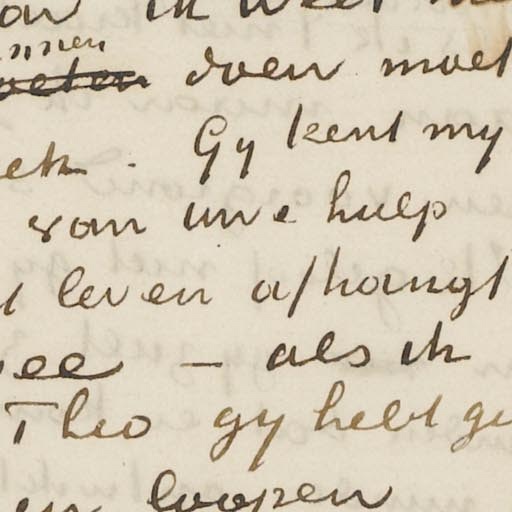 ik weet
nnen
oeten doen moet
ek. Gy kent my
van uwe hulp
leven afhangt
ee — als ik
Theo gy hebt ge
en loopen